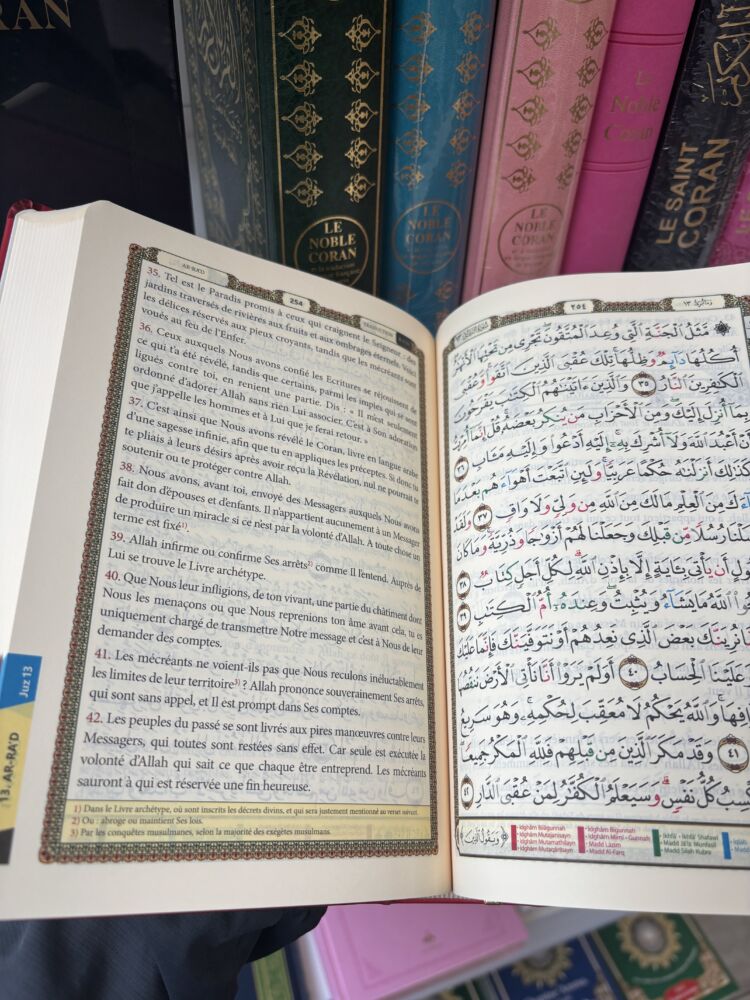 RAN
LE
NOBLE
CORAN
LE
NOBLE
CORAN
LE
NOBLE
CORAN
Le
Noble
Coran
LE SAINT
CORAN
AR-RA'D
254
35. Tel est le Paradis promis à ceux qui craignent le Seigneur : des
jardins traversés de rivières aux fruits et aux ombrages éternels. Voici
les délices réservés aux pieux croyants, tandis que les mécréants sont
voués au feu de l'Enfer.
36. Ceux auxquels Nous avons confié les Ecritures se réjouissent de
ce qui t'a été révélé, tandis que certains, parmi les impies qui se sont
ligués contre toi, en renient une partie. Dis : « Il m'est seulement
ordonné d'adorer Allah sans rien Lui associer. C'est à Son adoration
que j'appelle les hommes et à Lui que je ferai retour. »
37. C'est ainsi que Nous avons révélé le Coran, livre en langue arabe
d'une sagesse infinie, afin que tu en appliques les préceptes. Si donc tu
te pliais à leurs désirs après avoir reçu la Révélation, nul ne pourrait te
soutenir ou te protéger contre Allah.
38. Nous avons, avant toi, envoyé des Messagers auxquels Nous avons
fait don d'épouses et d'enfants. Il n'appartient aucunement à un Messager
de produire un miracle si ce n'est par la volonté d'Allah. A toute chose un
terme est fixé1).
39. Allah infirme ou confirme Ses arrêts2) comme Il l'entend. Auprès de
Lui se trouve le Livre archétype.
40. Que Nous leur infligions, de ton vivant, une partie du châtiment dont
Nous les menaçons ou que Nous reprenions ton âme avant cela, tu es
uniquement chargé de transmettre Notre message et c'est à Nous de leur
demander des comptes.
41. Les mécréants ne voient-ils pas que Nous reculons inéluctablement
les limites de leur territoire3) ? Allah prononce souverainement Ses arrêts,
qui sont sans appel, et Il est prompt dans Ses comptes.
42. Les peuples du passé se sont livrés aux pires manœuvres contre leurs
Messagers, qui toutes sont restées sans effet. Car seule est exécutée la
volonté d'Allah qui sait ce que chaque être entreprend. Les mécréants
sauront à qui est réservée une fin heureuse.
1) Dans le Livre archétype, où sont inscrits les décrets divins, et qui sera justement mentionné au verset suivant.
2) Ou : abroge ou maintient Ses lois.
3) Par les conquêtes musulmanes, selon la majorité des exégètes musulmans.
Juz 13
13. AR-RA'D
٢٥٤
مَّثَلُ ٱلْجَنَّةِ ٱلَّتِي وُعِدَ ٱلْمُتَّقُونَ تَجْرِي مِن تَحْتِهَا ٱلْأَنْهَٰرُ
أُكُلُهَا دَآئِمٌ وَظِلُّهَا تِلْكَ عُقْبَى ٱلَّذِينَ ٱتَّقَواْ وَّعُقْبَى
ٱلْكَٰفِرِينَ ٱلنَّارُ ٣٥ وَٱلَّذِينَ ءَاتَيْنَٰهُمُ ٱلْكِتَٰبَ يَفْرَحُونَ
بِمَآ أُنزِلَ إِلَيْكَ وَمِنَ ٱلْأَحْزَابِ مَن يُنكِرُ بَعْضَهُۥ قُلْ إِنَّمَآ أُمِرْتُ
أَنْ أَعْبُدَ ٱللَّهَ وَلَآ أُشْرِكَ بِهِۦٓ إِلَيْهِ أَدْعُواْ وَإِلَيْهِ مَـَٔابِ ٣٦
وَكَذَٰلِكَ أَنزَلْنَٰهُ حُكْمًا عَرَبِيًّا وَلَئِنِ ٱتَّبَعْتَ أَهْوَآءَهُم بَعْدَمَا
جَآءَكَ مِنَ ٱلْعِلْمِ مَا لَكَ مِنَ ٱللَّهِ مِن وَلِيٍّ وَلَا وَاقٍ ٣٧ وَلَقَدْ
أَرْسَلْنَا رُسُلًا مِّن قَبْلِكَ وَجَعَلْنَا لَهُمْ أَزْوَٰجًا وَذُرِّيَّةً وَمَا كَانَ
لِرَسُولٍ أَن يَأْتِيَ بِـَٔايَةٍ إِلَّا بِإِذْنِ ٱللَّهِ لِكُلِّ أَجَلٍ كِتَابٌ ٣٨
يَمْحُواْ ٱللَّهُ مَا يَشَآءُ وَيُثْبِتُ وَعِندَهُۥٓ أُمُّ ٱلْكِتَٰبِ ٣٩
وَإِن مَّا نُرِيَنَّكَ بَعْضَ ٱلَّذِي نَعِدُهُمْ أَوْ نَتَوَفَّيَنَّكَ فَإِنَّمَا عَلَيْكَ
وَعَلَيْنَا ٱلْحِسَابُ ٤٠ أَوَلَمْ يَرَوْاْ أَنَّا نَأْتِي ٱلْأَرْضَ نَنقُصُهَا
أَطْرَافِهَا وَٱللَّهُ يَحْكُمُ لَا مُعَقِّبَ لِحُكْمِهِۦ وَهُوَ سَرِيعُ
٤١ وَقَدْ مَكَرَ ٱلَّذِينَ مِن قَبْلِهِمْ فَلِلَّهِ ٱلْمَكْرُ جَمِيعًا
تَكْسِبُ كُلُّ نَفْسٍ وَسَيَعْلَمُ ٱلْكُفَّٰرُ لِمَنْ عُقْبَى ٱلدَّارِ ٤٢
• Idghâm Bilâgunnah
• Idghâm Mutajanisayn
• Idghâm Mutamathilayn
• Idghâm Mutaqâribayn
• Idghâm Bigunnah
• Idghâm Mimi - Gunnah
• Madd Lâzim
• Madd Al-Farq
• Ikhfâ' - Ikhfâ' Shafawî
• Madd Jâ'iz Munfasil
• Madd Silah Kubra